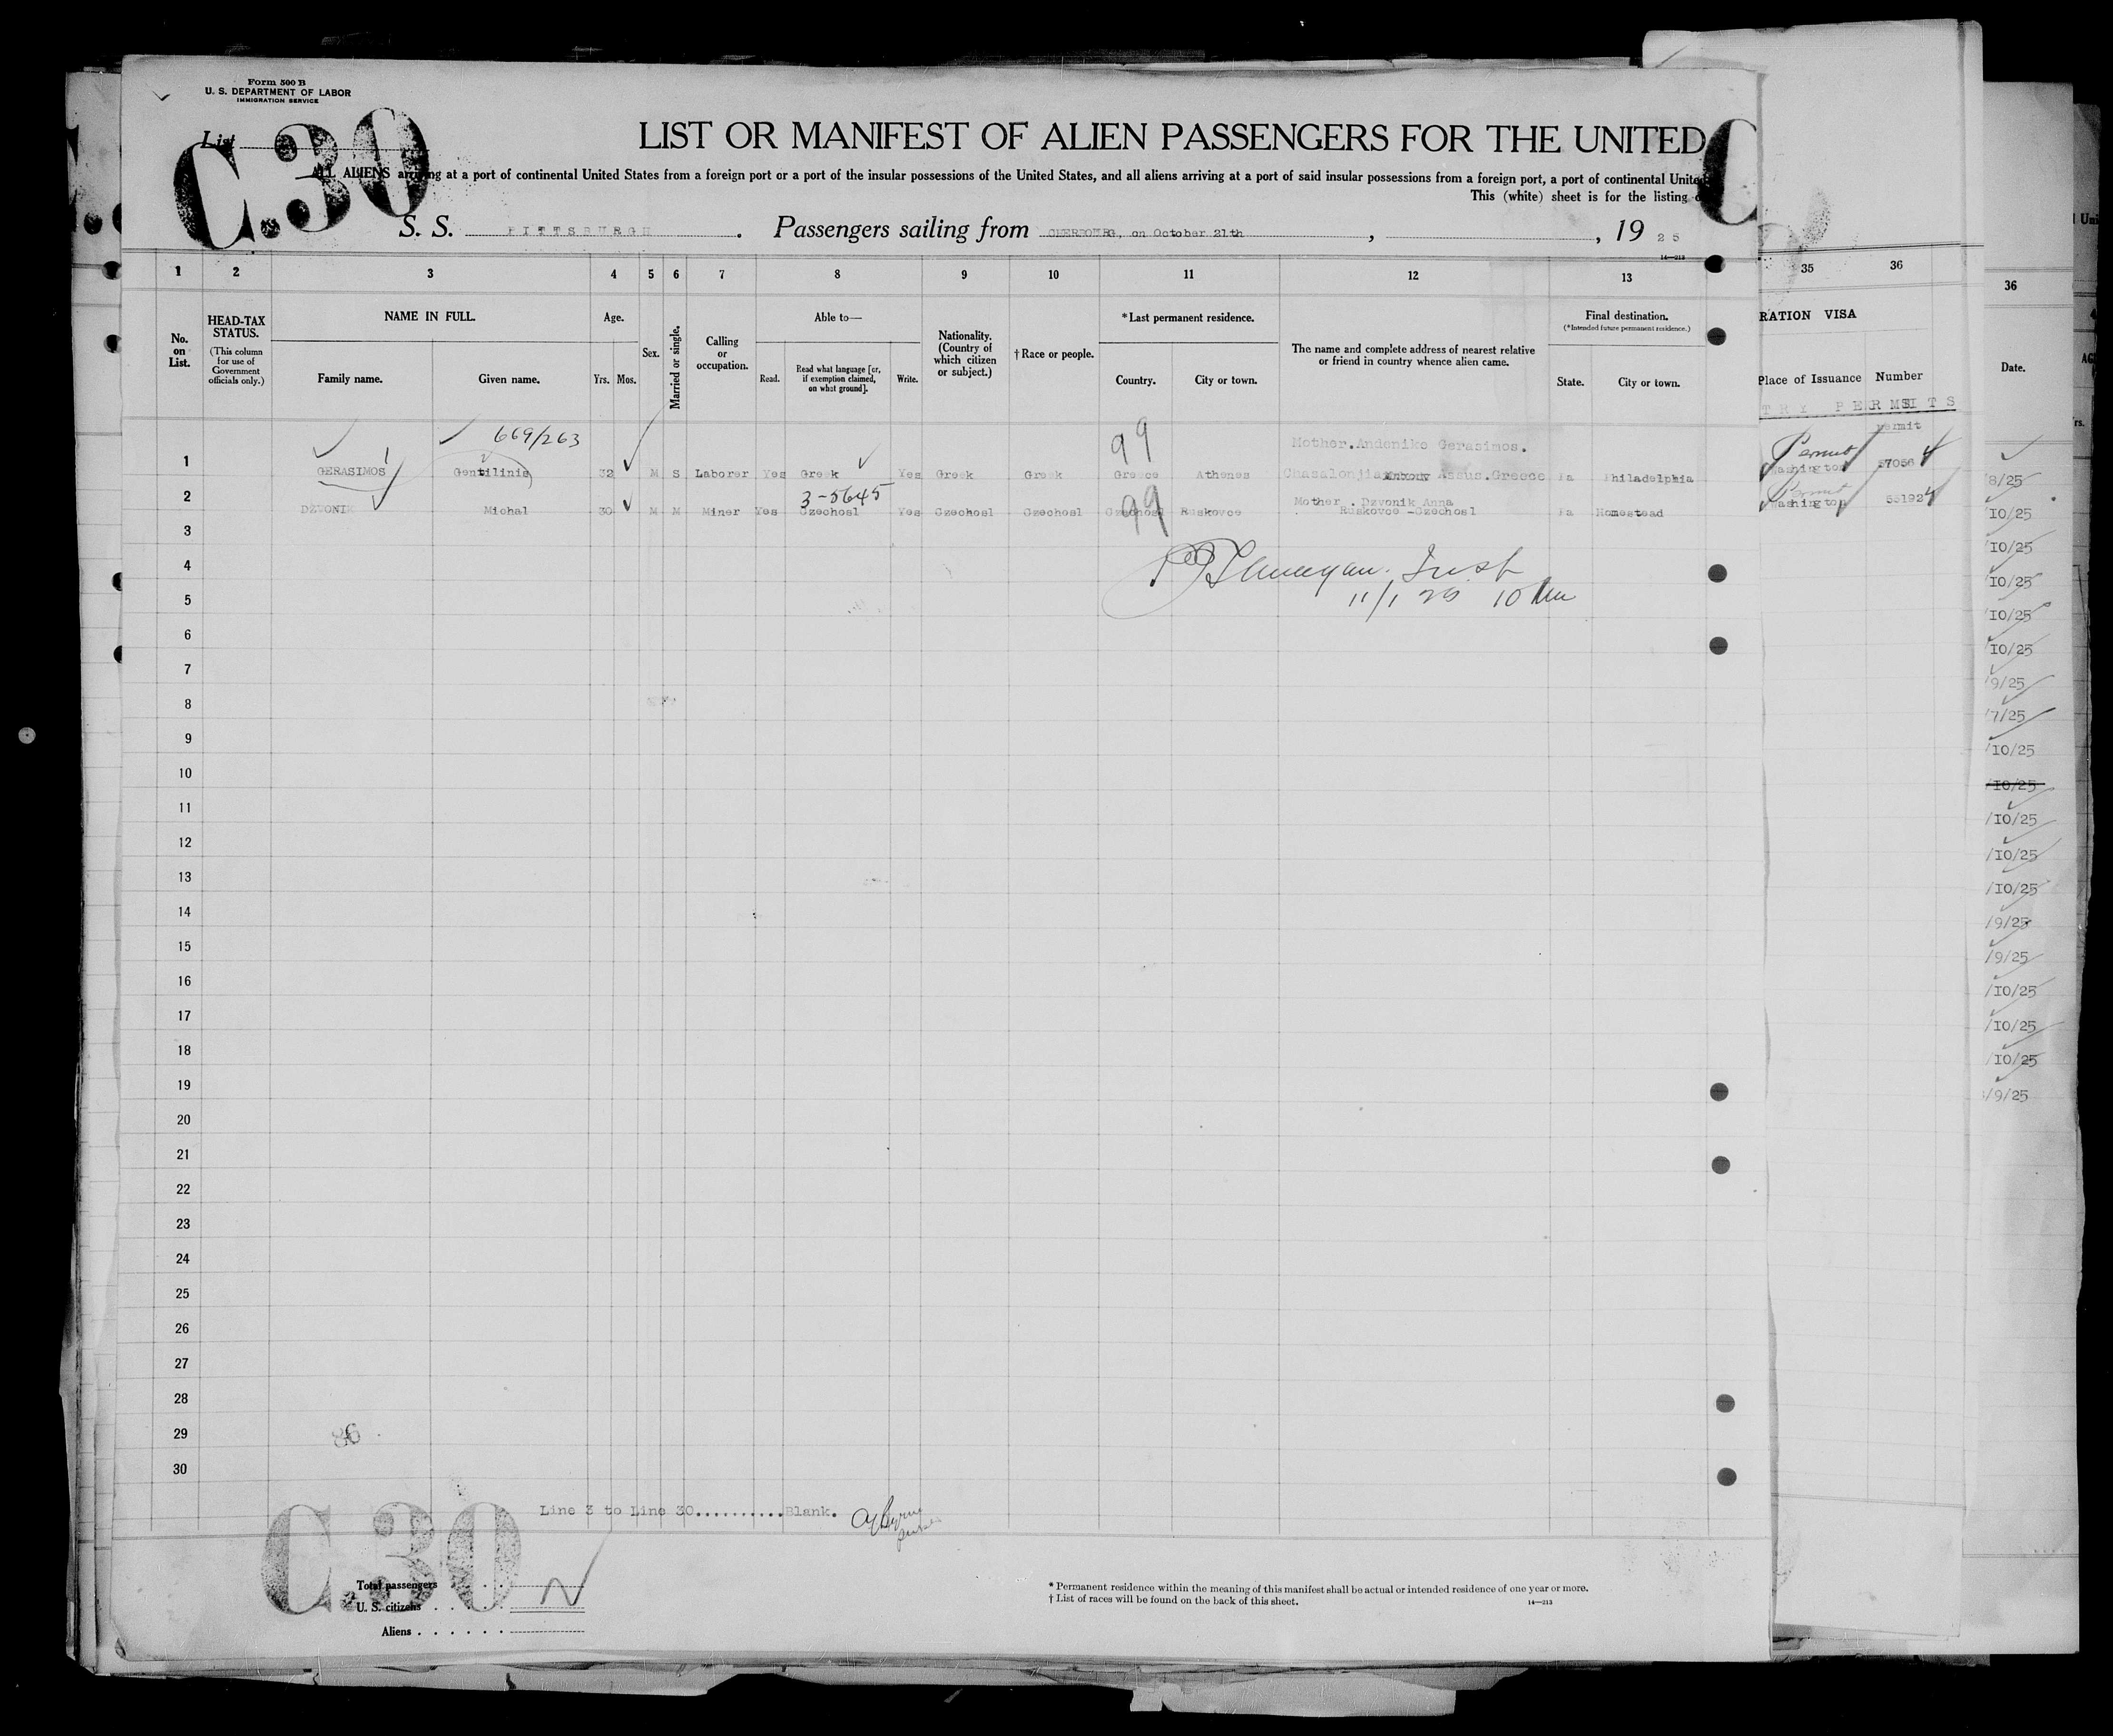 Form 500 B
U. S. DEPARTMENT OF LABOR
IMMIGRATION SERVICE
List
C.30
LIST OR MANIFEST OF ALIEN PASSENGERS FOR THE UNITED
C
ALL ALIENS arriving at a port of continental United States from a foreign port or a port of the insular possessions of the United States, and all aliens arriving at a port of said insular possessions from a foreign port, a port of continental Unite
This (white) sheet is for the listing
S. S. PITTSBURGH. Passengers sailing from CHERBOURG, on October 21th, , 19 25
14—213
1 2 3 4 5 6 7 8 9 10 11 12 13 35 36
36
No. on List.
HEAD-TAX STATUS.
(This column for use of Government officials only.)
NAME IN FULL.
Family name. Given name.
Age.
Yrs. Mos.
Sex.
Married or single.
Calling or occupation.
Able to—
Read. Read what language [or, if exemption claimed, on what ground]. Write.
Nationality. (Country of which citizen or subject.)
†Race or people.
*Last permanent residence.
Country. City or town.
The name and complete address of nearest relative or friend in country whence alien came.
Final destination.
(*Intended future permanent residence.)
State. City or town.
RATION VISA
Place of Issuance Number
Date.
TRY PERMITS
permit
669/263
99
Mother.Andonike Gerasimos.
Permit
1 GERASIMOS Gentilinis 32 M S Laborer Yes Greek Yes Greek Greek Greece Athenes Chasalonjia Assus.Greece Pa Philadelphia Washington 57056
3-5645
99
Mother. Dzvonik Anna
Permit
2 DZVONIK Michal 30 M M Miner Yes Czechosl Yes Czechosl Czechosl Czechosl Ruskovce Ruskovce -Czechosl Pa Homestead Washington 55192
3
4
Insp
5
11/1 25 10 Am
6
7
8
9
10
11
12
13
14
15
16
17
18
19
20
21
22
23
24
25
26
27
28
29
30
8/25
/10/25
/10/25
/10/25
/10/25
/10/25
/9/25
/7/25
/10/25
/10/25
/10/25
/10/25
/10/25
/9/25
/9/25
/10/25
/10/25
/10/25
/9/25
36
Line 3 to Line 30..........Blank.
C.30
Total passengers
U. S. citizens
Aliens
* Permanent residence within the meaning of this manifest shall be actual or intended residence of one year or more.
† List of races will be found on the back of this sheet.
14—213